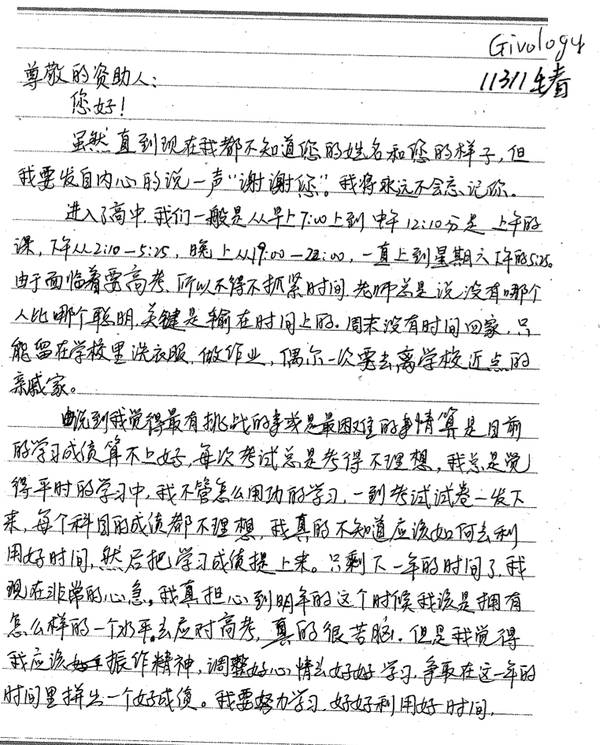 Givology
11311
尊敬的资助人：
您好！
虽然直到现在我都不知道您的姓名和您的样子，但
我要发自内心的说一声“谢谢您”。我将永远不会忘记你。
进入了高中，我们一般是从早上7:00上到中午12:10分是上午的
课，下午从2:10—5:25，晚上从19:00—22:00，一直上到星期六下午的5:25。
由于面临着要高考，所以不得不抓紧时间，老师总是说没有哪个
人比哪个聪明，关键是输在时间上的。周末没有时间回家，只
能留在学校里洗衣服，做作业，偶尔一次要去离学校近点的
亲戚家。
说到我觉得最有挑战的事或是最困难的事情算是目前
的学习成绩算不上好，每次考试总是考得不理想，我总是觉
得平时的学习中，我不管怎么用功的学习，一到考试试卷一发下
来，每个科目的成绩都不理想，我真的不知道应该如何去利
用好时间，然后把学习成绩提上来。只剩下一年的时间了，我
现在非常的心急。我真担心到明年的这个时候我该是拥有
怎么样的一个水平去应对高考，真的很苦脑。但是我觉得
我应该振作精神，调整好心情去好好学习，争取在这一年的
时间里拼出一个好成绩。我要努力学习，好好利用好时间，